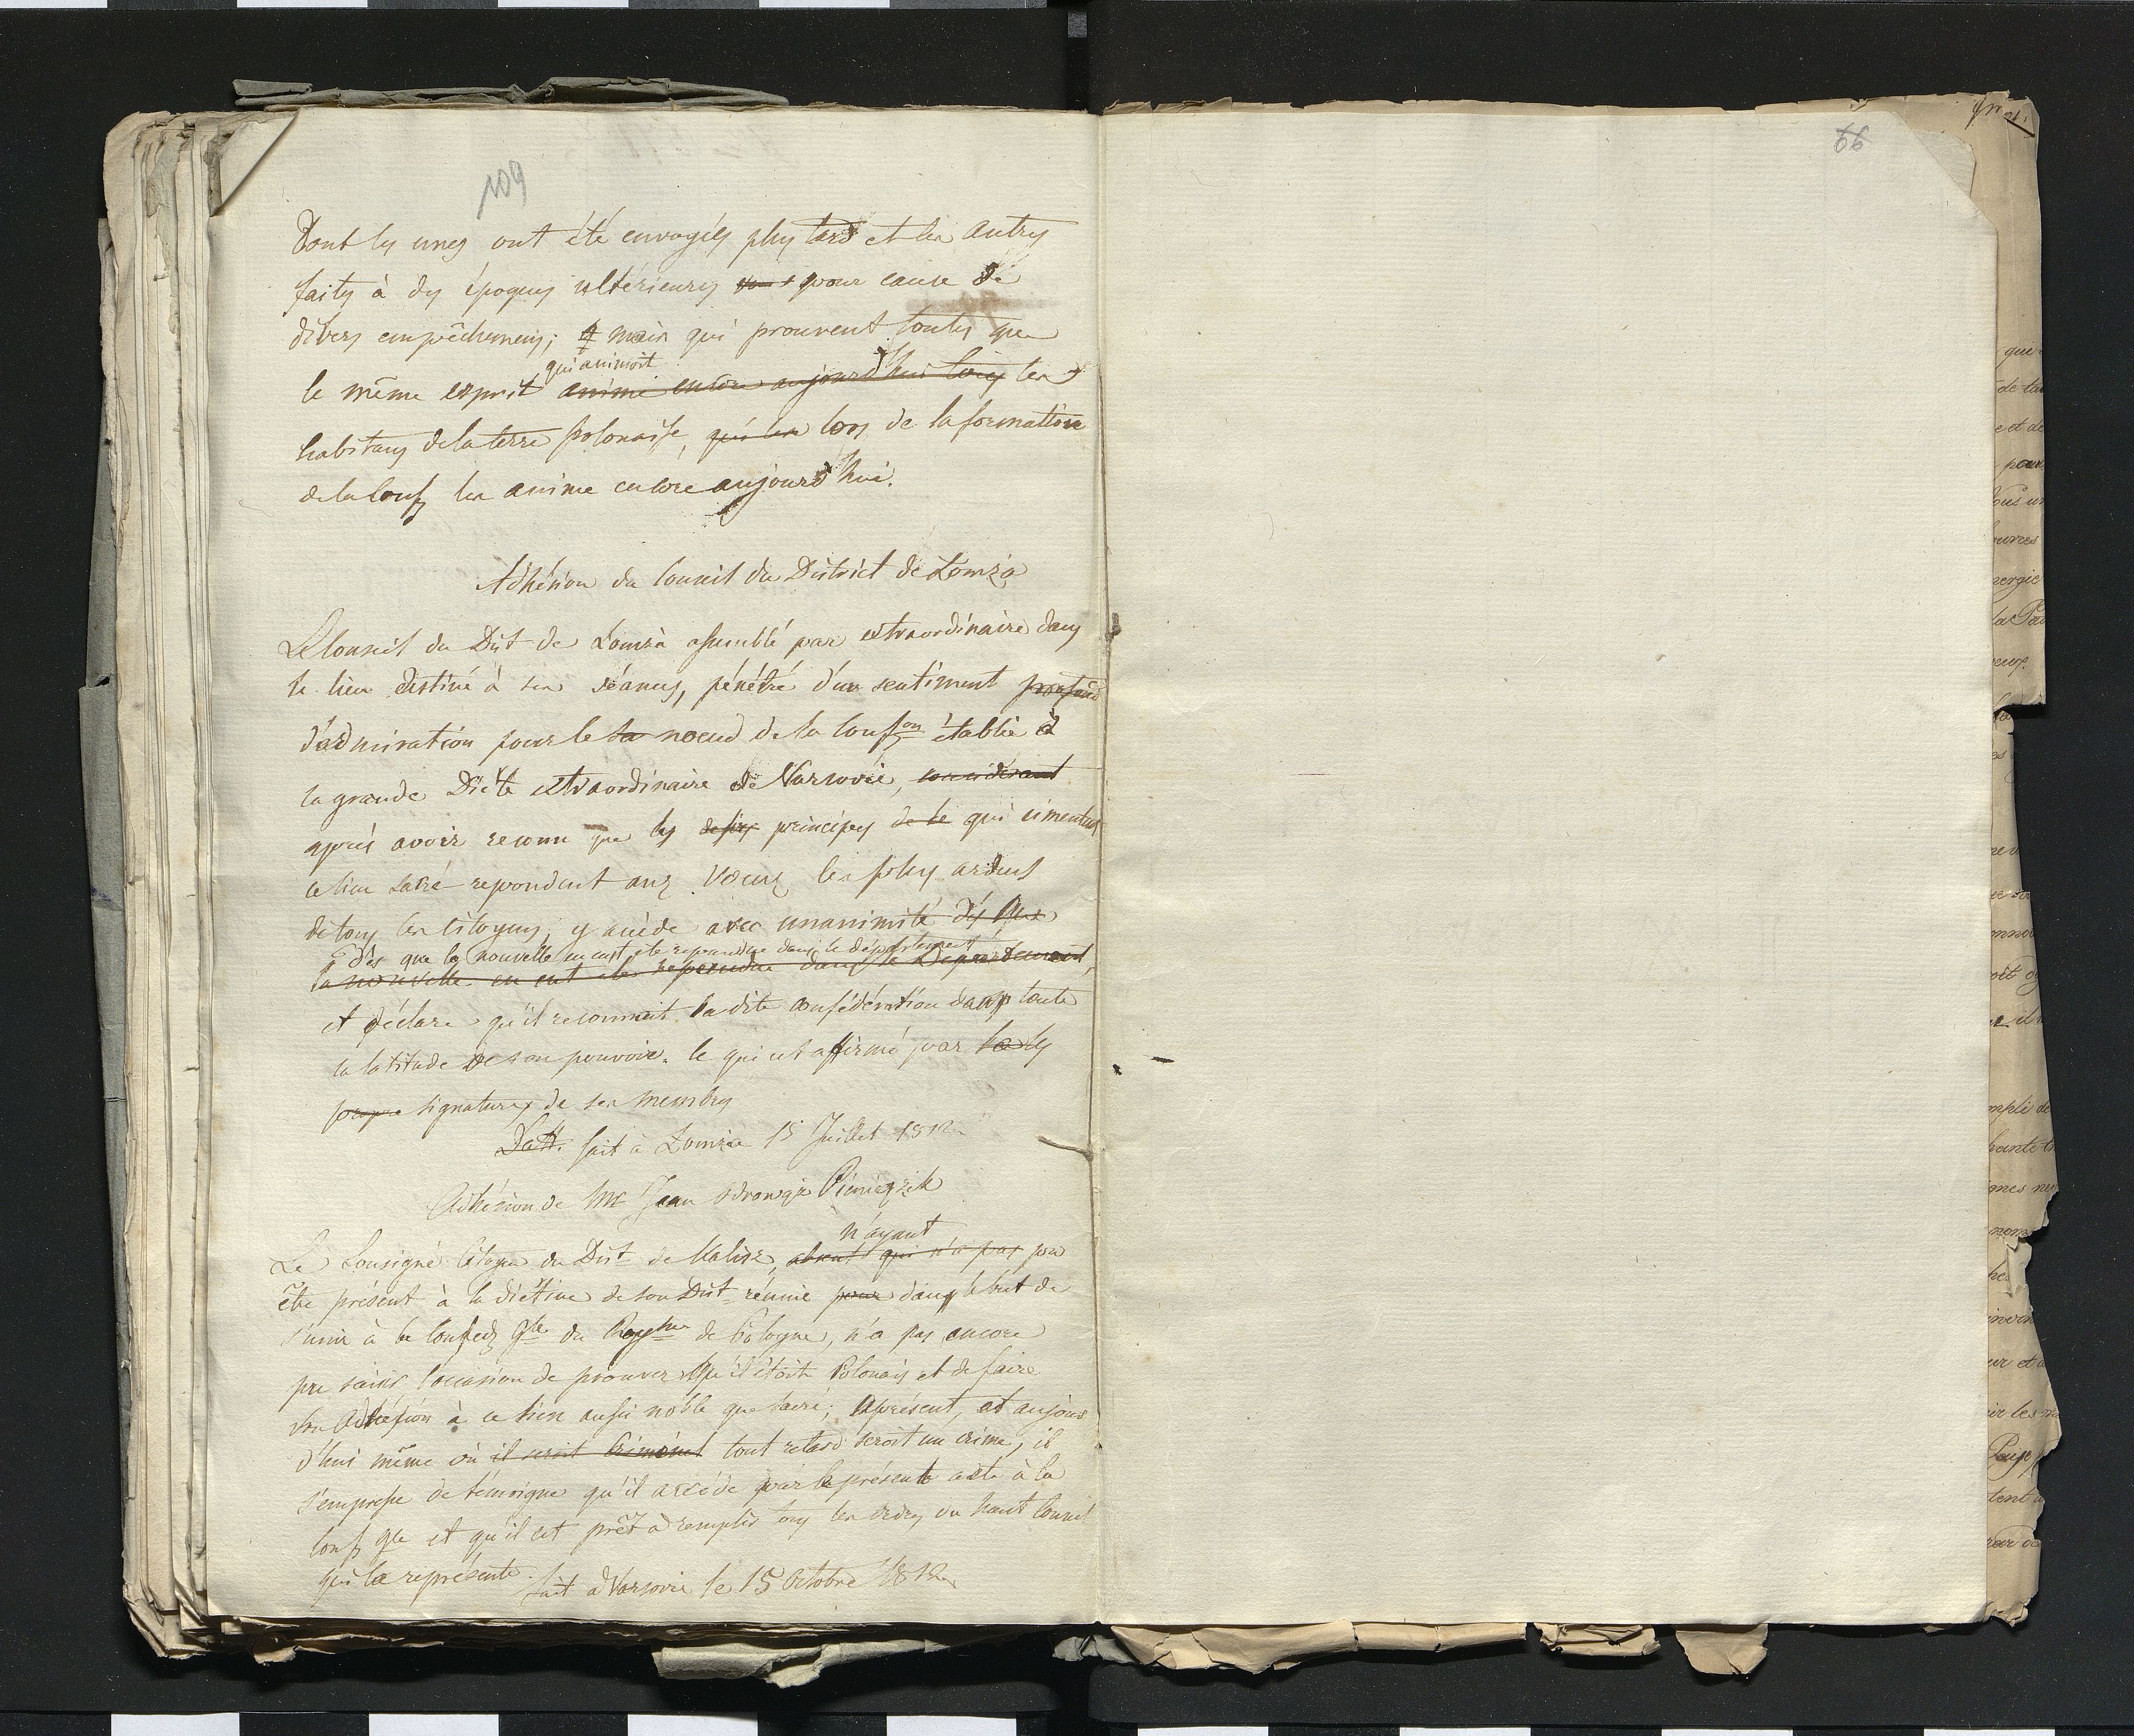 109
66
Dont les unes ont été envoyées plus tard et les autres
faites à des époques ultérieures pour cause de
divers empêchemens; mais qui prouvent toutes que
qui animoit
le même esprit anime encore aujourd'hui tous les
habitans de la terre Polonaise, qui les lors de la formation
de la Conf les anime encore aujourd'hui.
Adhésion du Conseil du District de Łomża
Le Conseil du Dist de Łomża assemblé par extraordinaire dans
le lieu destiné à ses séances, pénétré d'un sentiment profond
d'admiration pour le la noeud de la Confon établie à
la grande Diète extraordinaire de Varsovie, considérant
après avoir reconnu que les principes de le qui cimentent
ce lien sacré repondent aux voeux les plus ardens
de tous les citoyens, y accède avec unanimité dès que
dès que la nouvelle en eut été repandue dans le département
la nouvelle en eut été repandue dans le Département,
et déclare qu'il reconnait la dite confédération dans toute
la latitude de son pouvoir. Ce qui est affirmé par la les
propre signatures de ses membres
fait à Łomża 15 Juillet 1812
Adhésion de Mr Jean Odrowąż Pieniążek
n'ayant
Le Sousigné Citoyen du Dist de Kalisz, absent qui n'a pas pu
être présent à la diétine de son Dist réunie pour dans le but de
s'unir à la Confed Gle du Royme de Pologne, n'a pas encore
pu saisir l'occasion de prouver qu'il étoit Polonais et de faire
son Adhésion à ce lien aussi noble que sacré; Aprésent, et aujour
d'hui même où il seroit criminel tout retard seroit un crime, il
s'empresse de témoigner qu'il accède par la présente acte à la
Conf gle et qu'il est prêt à remplir tous les ordres du haut Conseil
qui la représente.
fait à Varsovie le 15 Octobre 1812